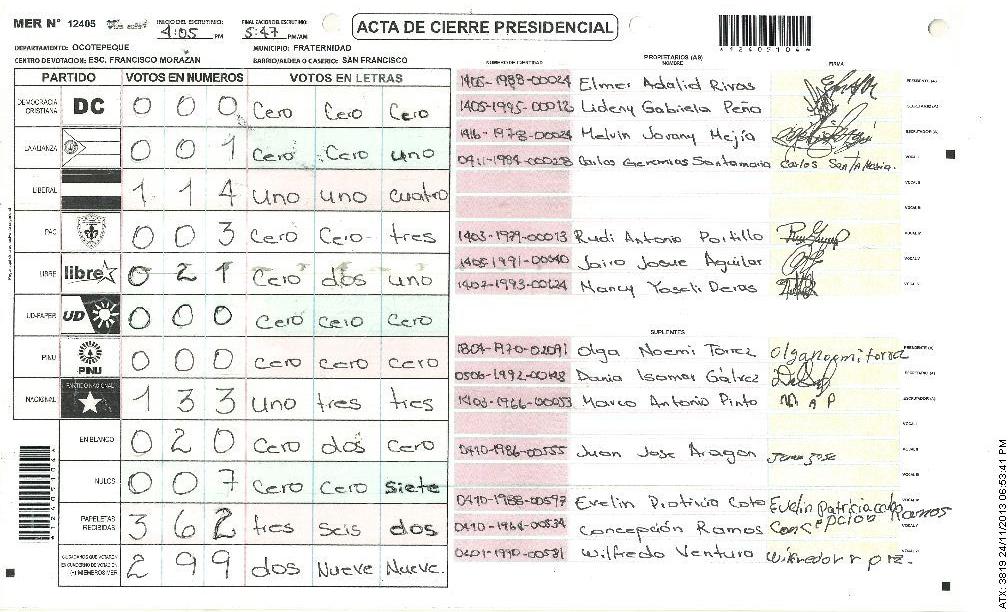 MER N° 12405 INICIO DEL ESCRUTINIO: 4:05 PM FINALIZACION DEL ESCRUTINIO: 5:47 PM/AM
ACTA DE CIERRE PRESIDENCIAL
DEPARTAMENTO: OCOTEPEQUE MUNICIPIO: FRATERNIDAD
CENTRO DE VOTACION: ESC. FRANCISCO MORAZAN BARRIO/ALDEA O CASERIO: SAN FRANCISCO
PARTIDO VOTOS EN NUMEROS VOTOS EN LETRAS
DEMOCRACIA CRISTIANA DC 0 0 0 Cero Cero Cero
LA ALIANZA 0 0 1 Cero Cero uno
LIBERAL 1 1 4 uno uno cuatro
PAC 0 0 3 Cero Cero tres
LIBRE libre 0 2 1 Cero dos uno
UD-FAPER UD 0 0 0 Cero Cero Cero
PINU PINU 0 0 0 Cero cero Cero
NACIONAL PARTIDO NACIONAL 1 3 3 uno tres tres
EN BLANCO 0 2 0 Cero dos Cero
NULOS 0 0 7 Cero Cero siete
PAPELETAS RECIBIDAS 3 6 2 tres seis dos
CIUDADANOS QUE VOTARON EN CUADERNO DE VOTACION (+) MIEMBROS MER 2 9 9 dos Nueve Nueve.
PROPIETARIOS (AS)
NUMERO DE IDENTIDAD NOMBRE FIRMA
1405-1988-00024 Elmer Adalid Rivas PRESIDENTE (A)
1405-1995-00012 Lideny Gabriela Peña SECRETARIO (A)
1416-1978-00024 Melvin Jovany Mejía ESCRUTADOR (A)
0411-1984-00028 Carlos Geremias Santamaria Carlos Santa Maria. VOCAL I
VOCAL II
VOCAL III
1403-1979-00013 Rudi Antonio Portillo VOCAL IV
1405-1991-00040 Jairo Josue Aguilar VOCAL V
1407-1993-00124 Nancy Yoseli Deras
SUPLENTES
1804-1970-02091 Olga Noemi Torrez Olga noemi torrez PRESIDENTE (A)
0506-1992-00148 Dania Isamar Gálvez SECRETARIO (A)
1403-1966-00053 Marco Antonio Pinto M A P ESCRUTADOR (A)
VOCAL I
0410-1986-00555 Juan Jose Aragon Juan Jose VOCAL II
VOCAL III
0410-1988-00597 Evelin Patricia Coto Evelin Patricia coto
0410-1964-00534 Concepción Ramos Concepcion Ramos VOCAL V
0401-1990-00581 Wilfredo Ventura
ATX: 3819 24/11/2013 06:53:41 PM